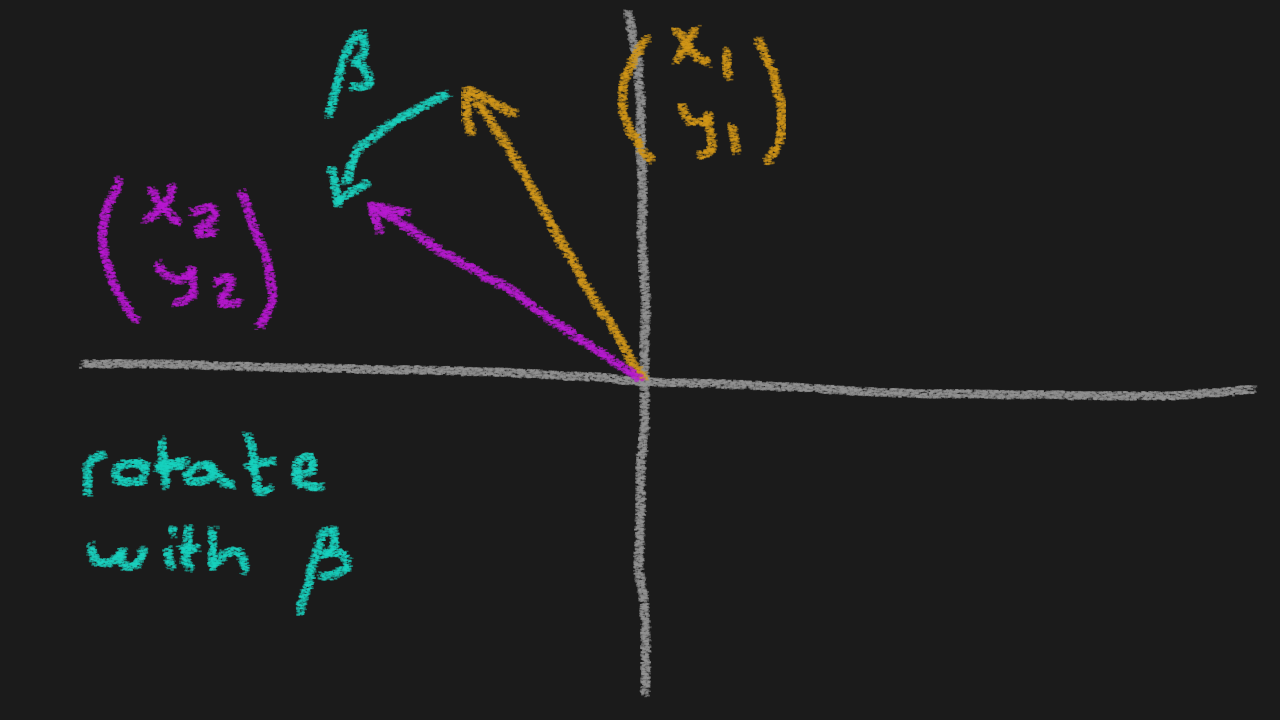 β
( x₁
y₁ )
( x₂
y₂ )
rotate
with β